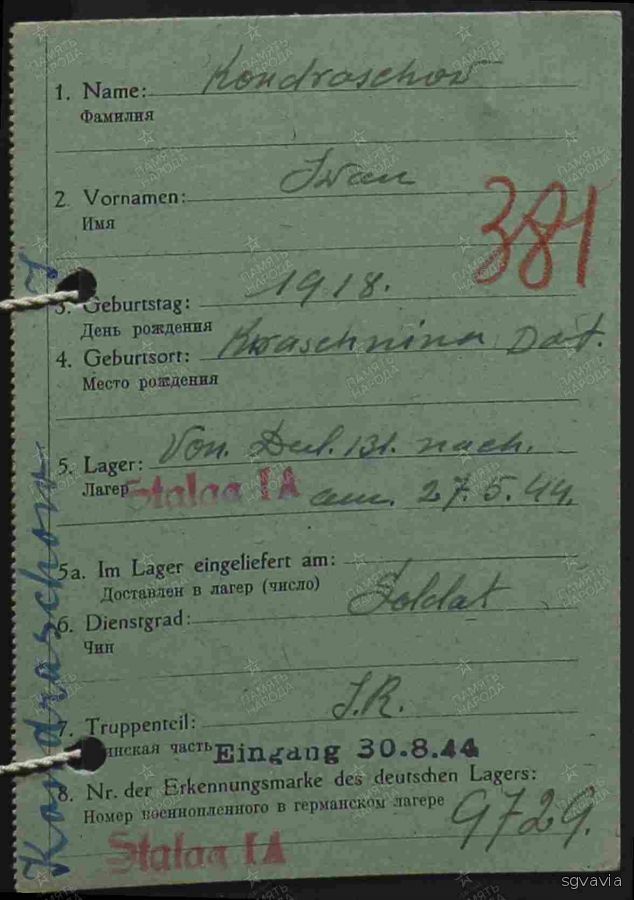 1. Name: Kondraschow
Фамилия
2. Vornamen: Iwan
Имя
381
3. Geburtstag: 1918.
День рождения
4. Geburtsort: Kwaschnina Dat.
Место рождения
5. Lager: Von. 131. nach.
Лагер Stalag IA am. 27.5.44.
5a. Im Lager eingeliefert am:
Доставлен в лагер (число)
6. Dienstgrad: Soldat
Чин
7. Truppenteil: I.R.
инская часть Eingang 30.8.44
8. Nr. der Erkennungsmarke des deutschen Lagers:
Номер военнопленного в германском лагере 9729.
Stalag IA
Kondraschow I
ПАМЯТЬ НАРОДА
sgvavia